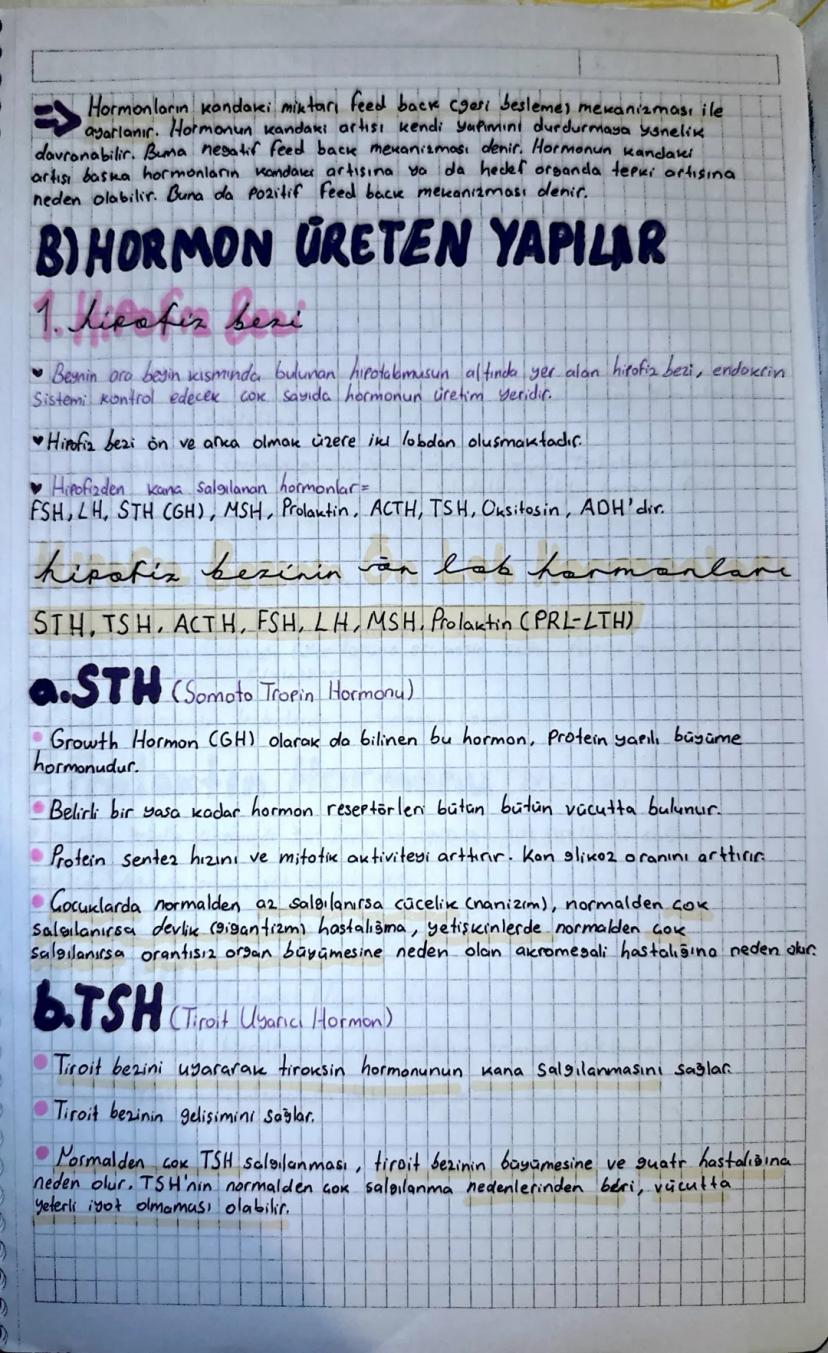 ⇒ Hormonların kandaki miktarı feed back (geri besleme) mekanizması ile
ayarlanır. Hormonun kandaki artışı kendi yapımını durdurmaya yönelik
davranabilir. Buna negatif feed back mekanizması denir. Hormonun kandaki
artışı başka hormonların kandaki artışına ya da hedef organda tepki artışına
neden olabilir. Buna da pozitif feed back mekanizması denir.
B) HORMON ÜRETEN YAPILAR
1. hipofiz bezi
♥ Beynin ara beyin kısmında bulunan hipotalamusun altında yer alan hipofiz bezi, endokrin
sistemi kontrol edecek çok sayıda hormonun üretim yeridir.
♥ Hipofiz bezi ön ve arka olmak üzere iki lobdan oluşmaktadır.
♥ Hipofizden kana salgılanan hormonlar=
FSH, LH, STH (GH), MSH, Prolaktin, ACTH, TSH, Oksitosin, ADH'dir.
hipofiz bezinin ön lob hormonları
STH, TSH, ACTH, FSH, LH, MSH, Prolaktin (PRL-LTH)
a. STH (Somoto Tropin Hormonu)
• Growth Hormon (GH) olarak da bilinen bu hormon, Protein yapılı büyüme
hormonudur.
• Belirli bir yaşa kadar hormon reseptörleri bütün bütün vücutta bulunur.
• Protein sentez hızını ve mitotik aktiviteyi arttırır. Kan glikoz oranını arttırır.
• Çocuklarda normalden az salgılanırsa cücelik (nanizim), normalden çok
salgılanırsa devlik (gigantizm) hastalığına, yetişkinlerde normalden çok
salgılanırsa orantısız organ büyümesine neden olan akromegali hastalığına neden olur.
b. TSH (Tiroit Uyarıcı Hormon)
• Tiroit bezini uyararak tiroksin hormonunun kana salgılanmasını sağlar.
• Tiroit bezinin gelişimini sağlar.
• Normalden çok TSH salgılanması, tiroit bezinin büyümesine ve guatr hastalığına
neden olur. TSH'nin normalden çok salgılanma nedenlerinden biri, vücutta
yeterli iyot olmaması olabilir.